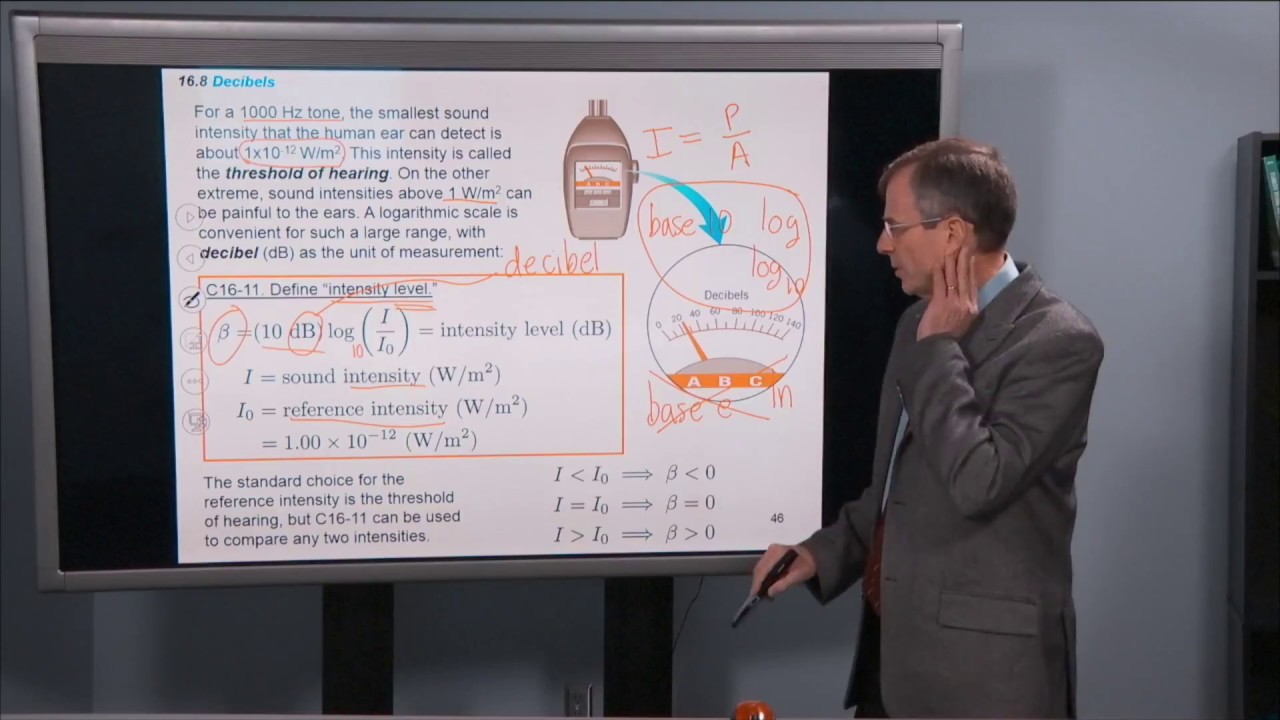 16.8 Decibels
For a 1000 Hz tone, the smallest sound
intensity that the human ear can detect is
about 1x10⁻¹² W/m². This intensity is called
the threshold of hearing. On the other
extreme, sound intensities above 1 W/m² can
be painful to the ears. A logarithmic scale is
convenient for such a large range, with
decibel (dB) as the unit of measurement:
decibel
C16-11. Define “intensity level.”
β = (10 dB) log₁₀ (I/I₀) = intensity level (dB)
I = sound intensity (W/m²)
I₀ = reference intensity (W/m²)
= 1.00 × 10⁻¹² (W/m²)
The standard choice for the
reference intensity is the threshold
of hearing, but C16-11 can be used
to compare any two intensities.
I = P/A
base 10 log
log₁₀
Decibels
0 20 40 60 80 100 120 140
A B C
base e ln
I < I₀ ⟹ β < 0
I = I₀ ⟹ β = 0
I > I₀ ⟹ β > 0
46